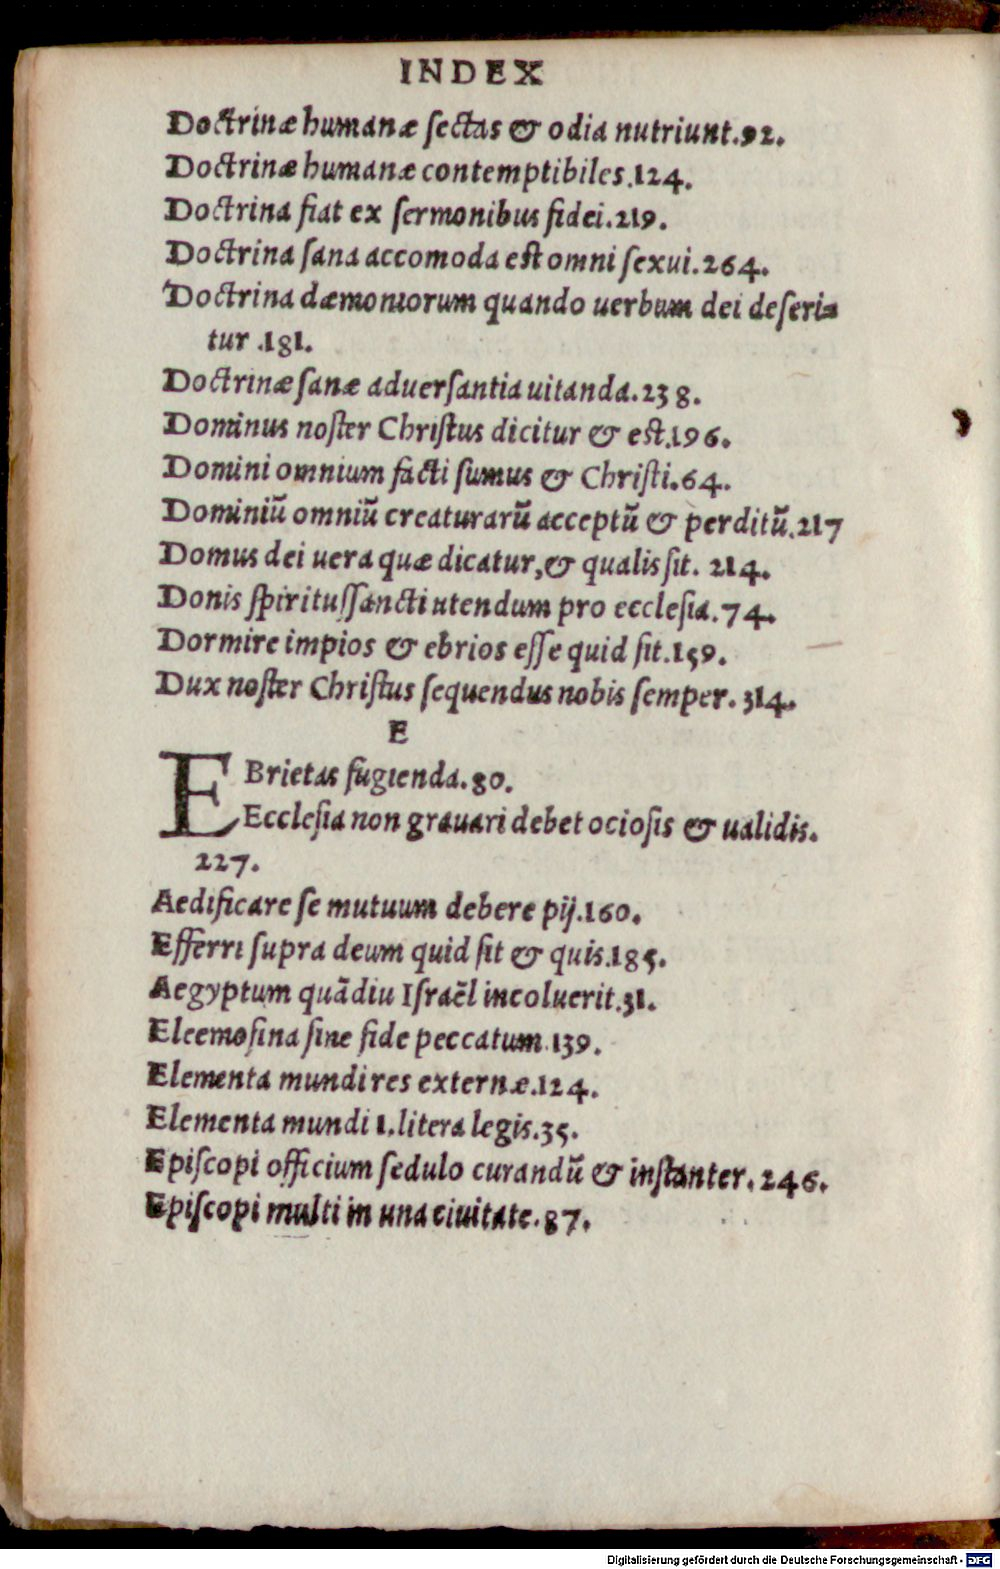 INDEX
Doctrinæ humanæ sectas & odia nutriunt.92.
Doctrinæ humanæ contemptibiles.124.
Doctrina fiat ex sermonibus fidei.219.
Doctrina sana accomoda est omni sexui.264.
Doctrina dæmoniorum quando uerbum dei deseri=
tur .181.
Doctrinæ sanæ aduersantia uitanda.238.
Dominus noster Christus dicitur & est.196.
Domini omnium facti sumus & Christi.64.
Dominiũ omniũ creaturarũ acceptũ & perditũ.217
Domus dei uera quæ dicatur,& qualis sit. 214.
Donis spiritussancti utendum pro ecclesia.74.
Dormire impios & ebrios esse quid sit.159.
Dux noster Christus sequendus nobis semper.314.
E
EBrietas fugienda.80.
Ecclesia non grauari debet ociosis & ualidis.
227.
Aedificare se mutuum debere pij.160.
Efferri supra deum quid sit & quis.185.
Aegyptum quãdiu Israẽl incoluerit.31.
Eleemosina sine fide peccatum.139.
Elementa mundi res externæ.124.
Elementa mundi 1.litera legis.35.
Episcopi officium sedulo curandũ & instanter.246.
Episcopi multi in una ciuitate.87.
Digitalisierung gefördert durch die Deutsche Forschungsgemeinschaft - DFG